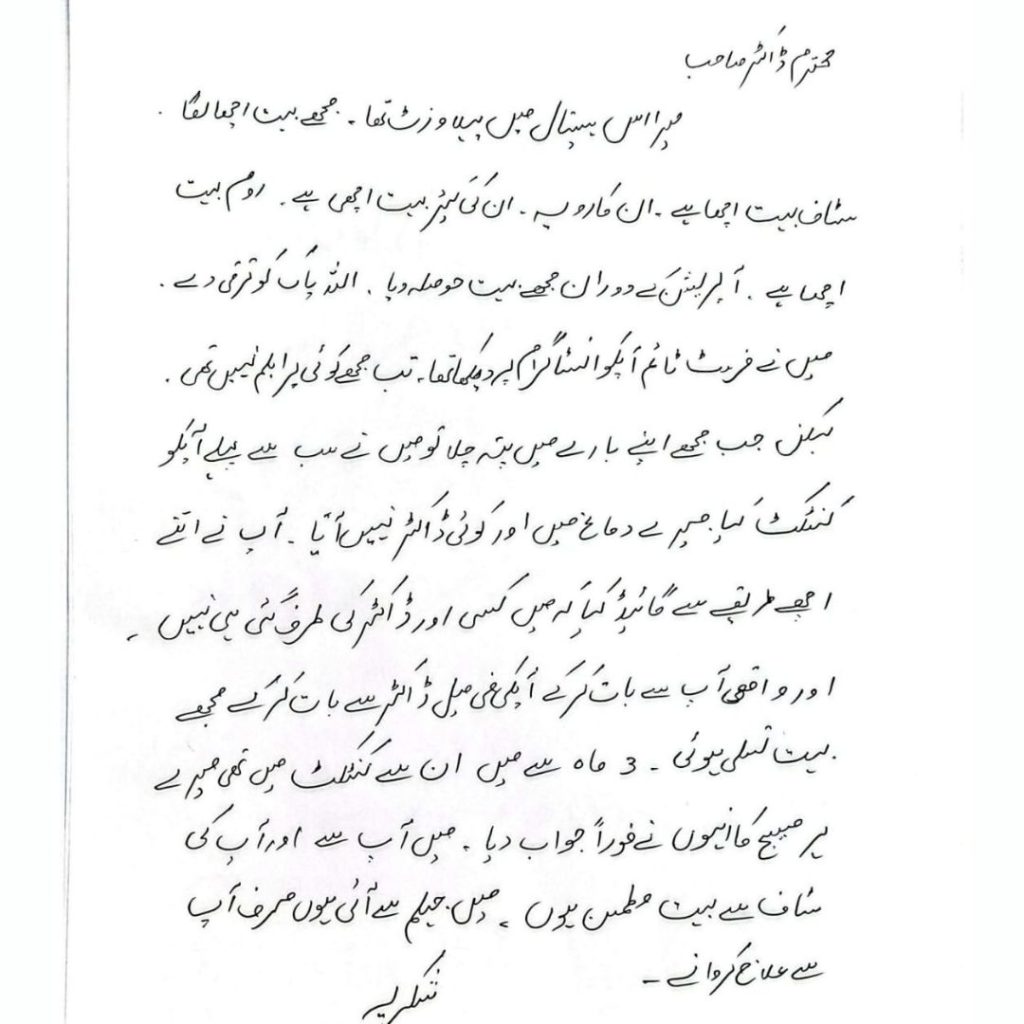 محترم ڈاکٹر صاحب
میرا اس ہسپتال میں پہلا وزٹ تھا ۔ مجھے بہت اچھا لگا ۔
سٹاف بہت اچھا ہے ۔ ان کا رویہ ۔ ان کی کیئر بہت اچھی ہے ۔ روم بہت
اچھا ہے ۔ آپریشن کے دوران مجھے بہت حوصلہ دیا ۔ اللہ پاک کو ترقی دے ۔
میں نے فرسٹ ٹائم آپکو انسٹاگرام پر دیکھا تھا ۔ تب مجھے کوئی پرابلم نہیں تھی ۔
لیکن جب مجھے اپنے بارے میں پتہ چلا تو میں نے سب سے پہلے آپکو
کنٹکٹ کیا میرے دماغ میں اور کوئی ڈاکٹر نہیں آیا ۔ آپ نے اتنے
اچھے طریقے سے گائیڈ کیا کہ میں کسی اور ڈاکٹر کی طرف گئی ہی نہیں ۔
اور واقعی آپ سے بات کر کے آپکی فی میل ڈاکٹر سے بات کر کے مجھے
بہت تسلی ہوئی ۔ 3 ماہ سے میں ان سے کنٹکٹ میں تھی میرے
ہر میسج کا انہوں نے فوراً جواب دیا ۔ میں آپ سے اور آپ کی
سٹاف سے بہت مطمن ہوں ۔ میں جہلم سے آئی ہوں صرف آپ
سے علاج کروانے ۔
شکریہ